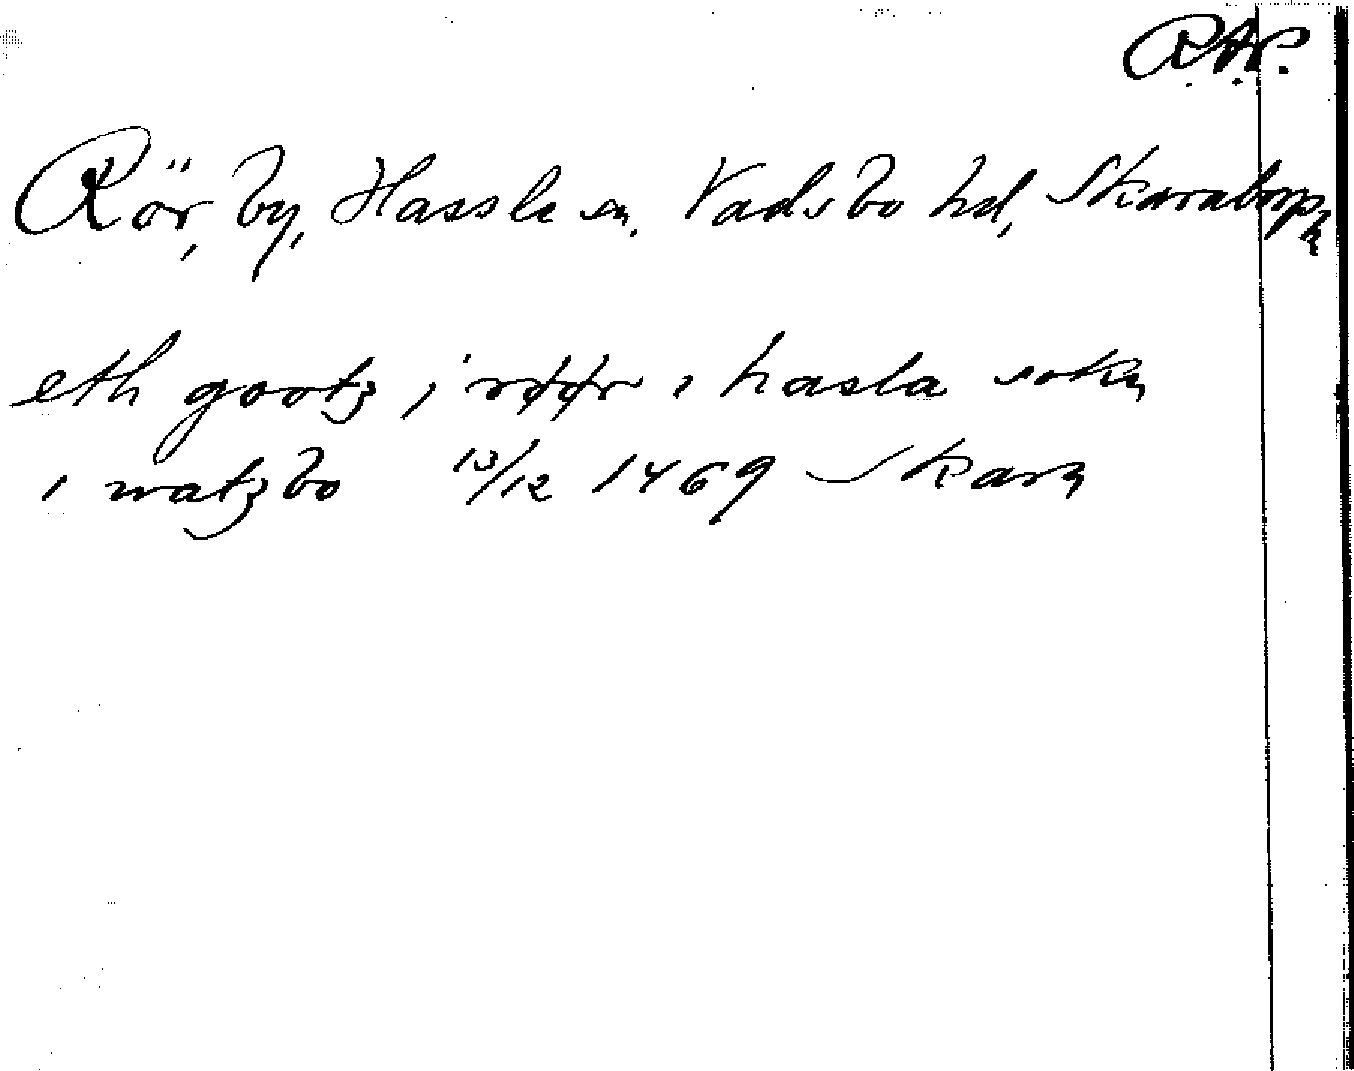 R.A.P.
Rör, by, Hassle sn, Vadsbo hd, Skaraborgs
eth gootz i røør i hasla sokn
i watzbo 13/12 1469 Skara